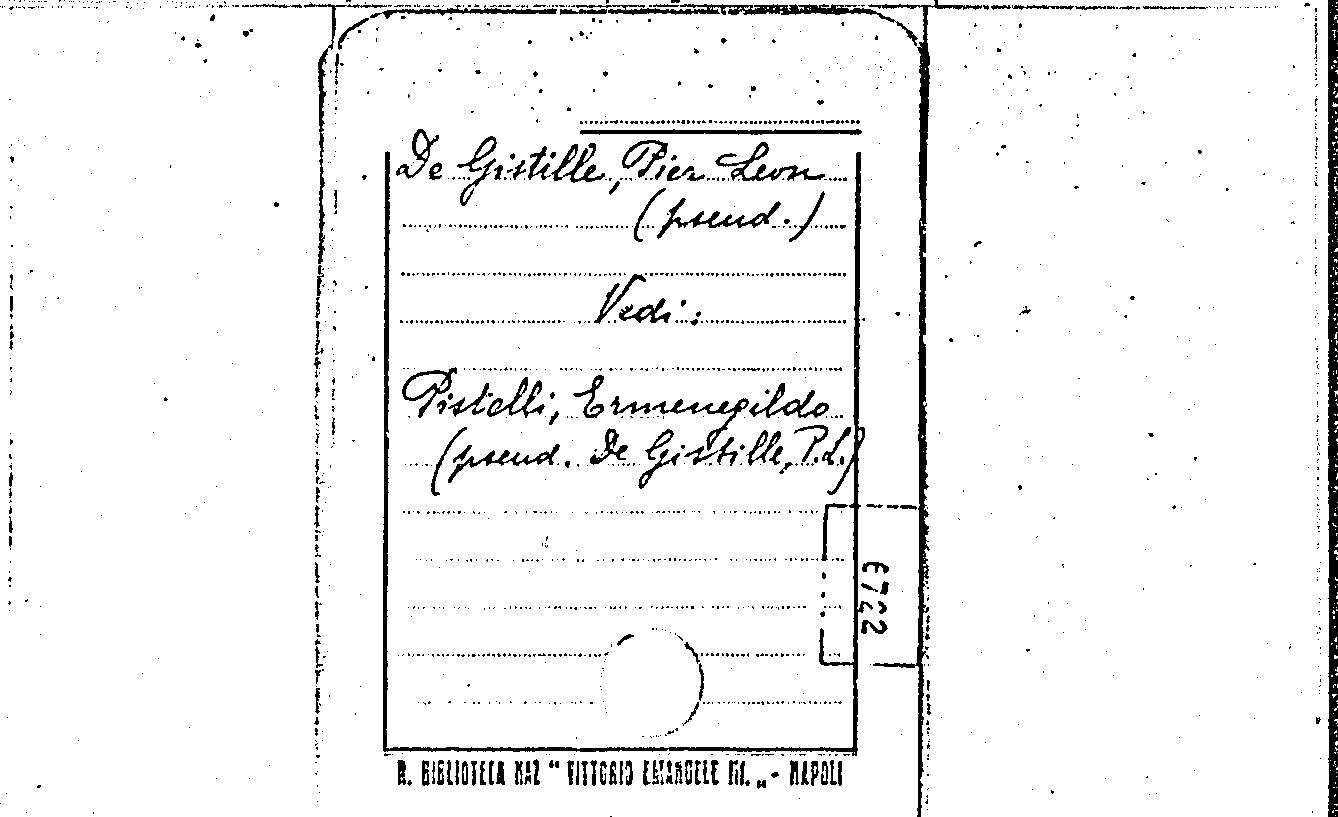 De Gistille, Pier Leon
(pseud.)
Vedi:
Pistelli, Ermenegildo
(pseud. De Gistille, P.L.)
6722
R. BIBLIOTECA NAZ " VITTORIO EMANUELE III. „ - NAPOLI